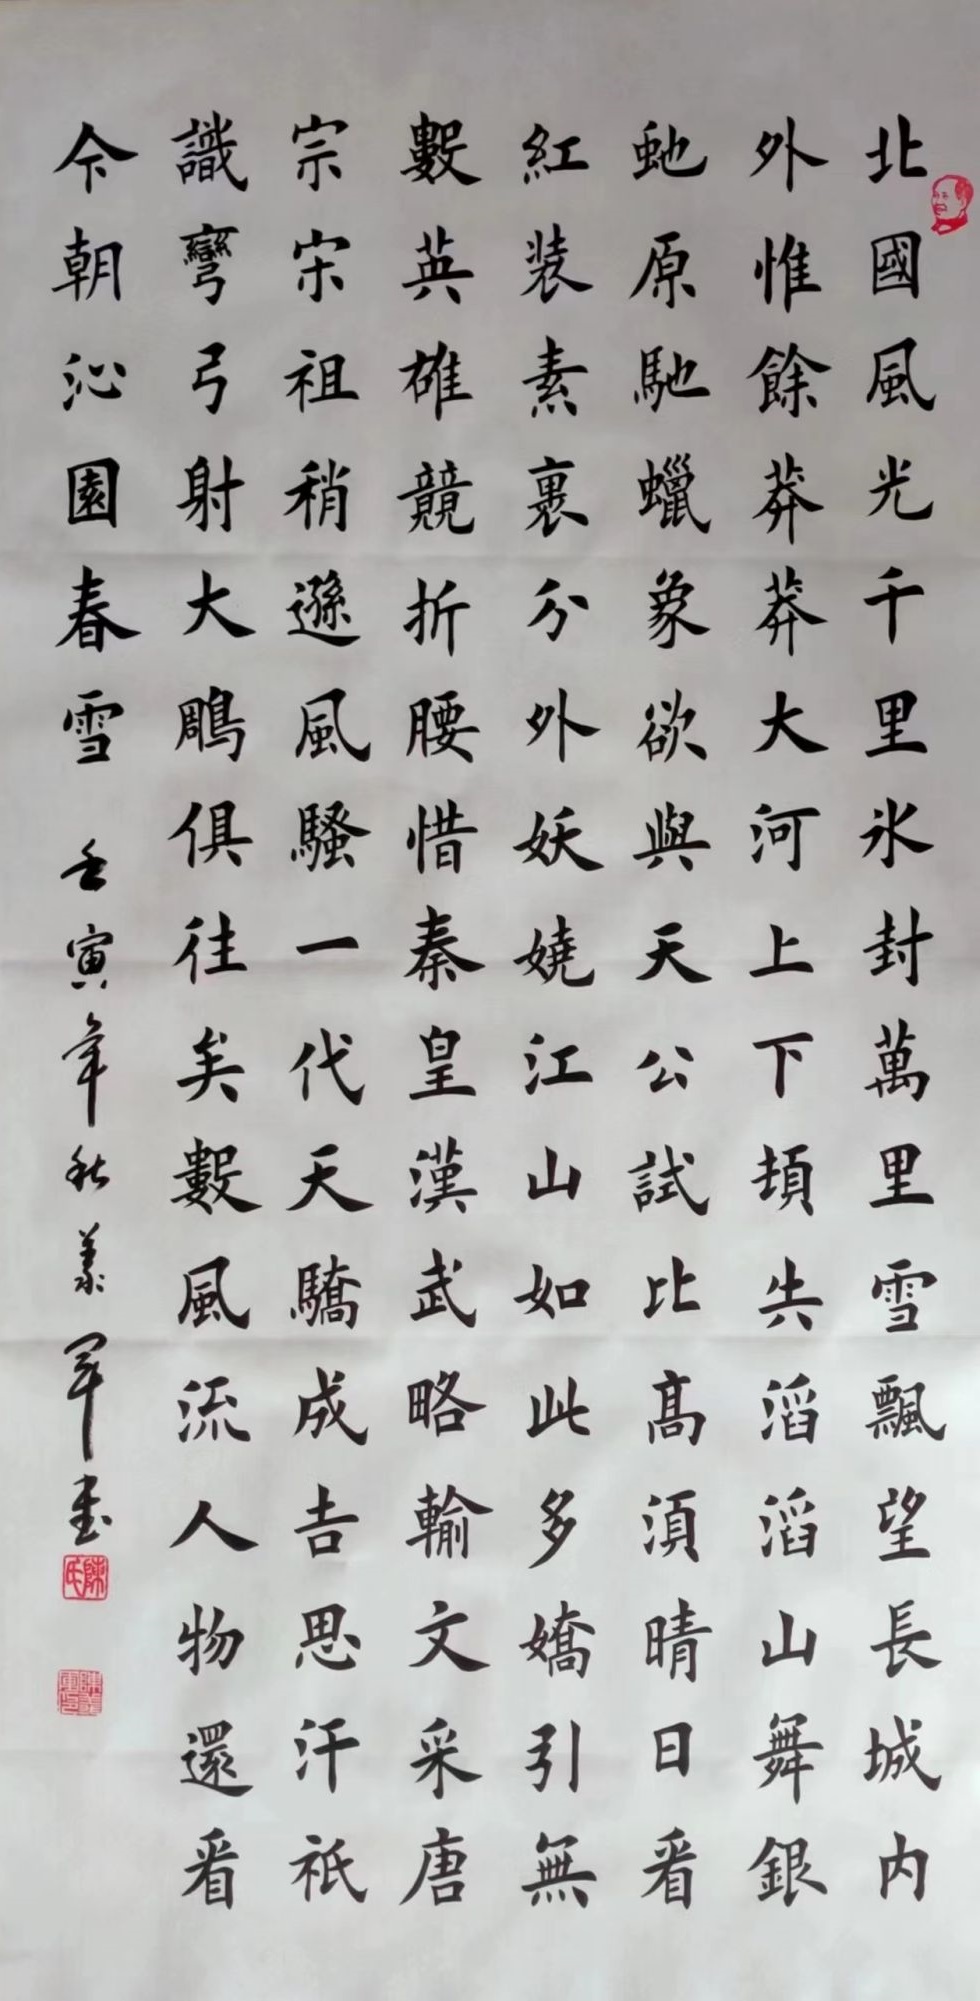 北國風光千里氷封萬里雪飄望長城内
外惟餘莽莽大河上下頓失滔滔山舞銀
虵原馳蠟象欲與天公試比高須晴日看
紅装素裹分外妖嬈江山如此多嬌引無
數英雄競折腰惜秦皇漢武略輸文采唐
宗宋祖稍遜風騷一代天驕成吉思汗祇
識彎弓射大鵰俱往矣數風流人物還看
今朝沁園春雪 壬寅年秋義軍書
陳氏